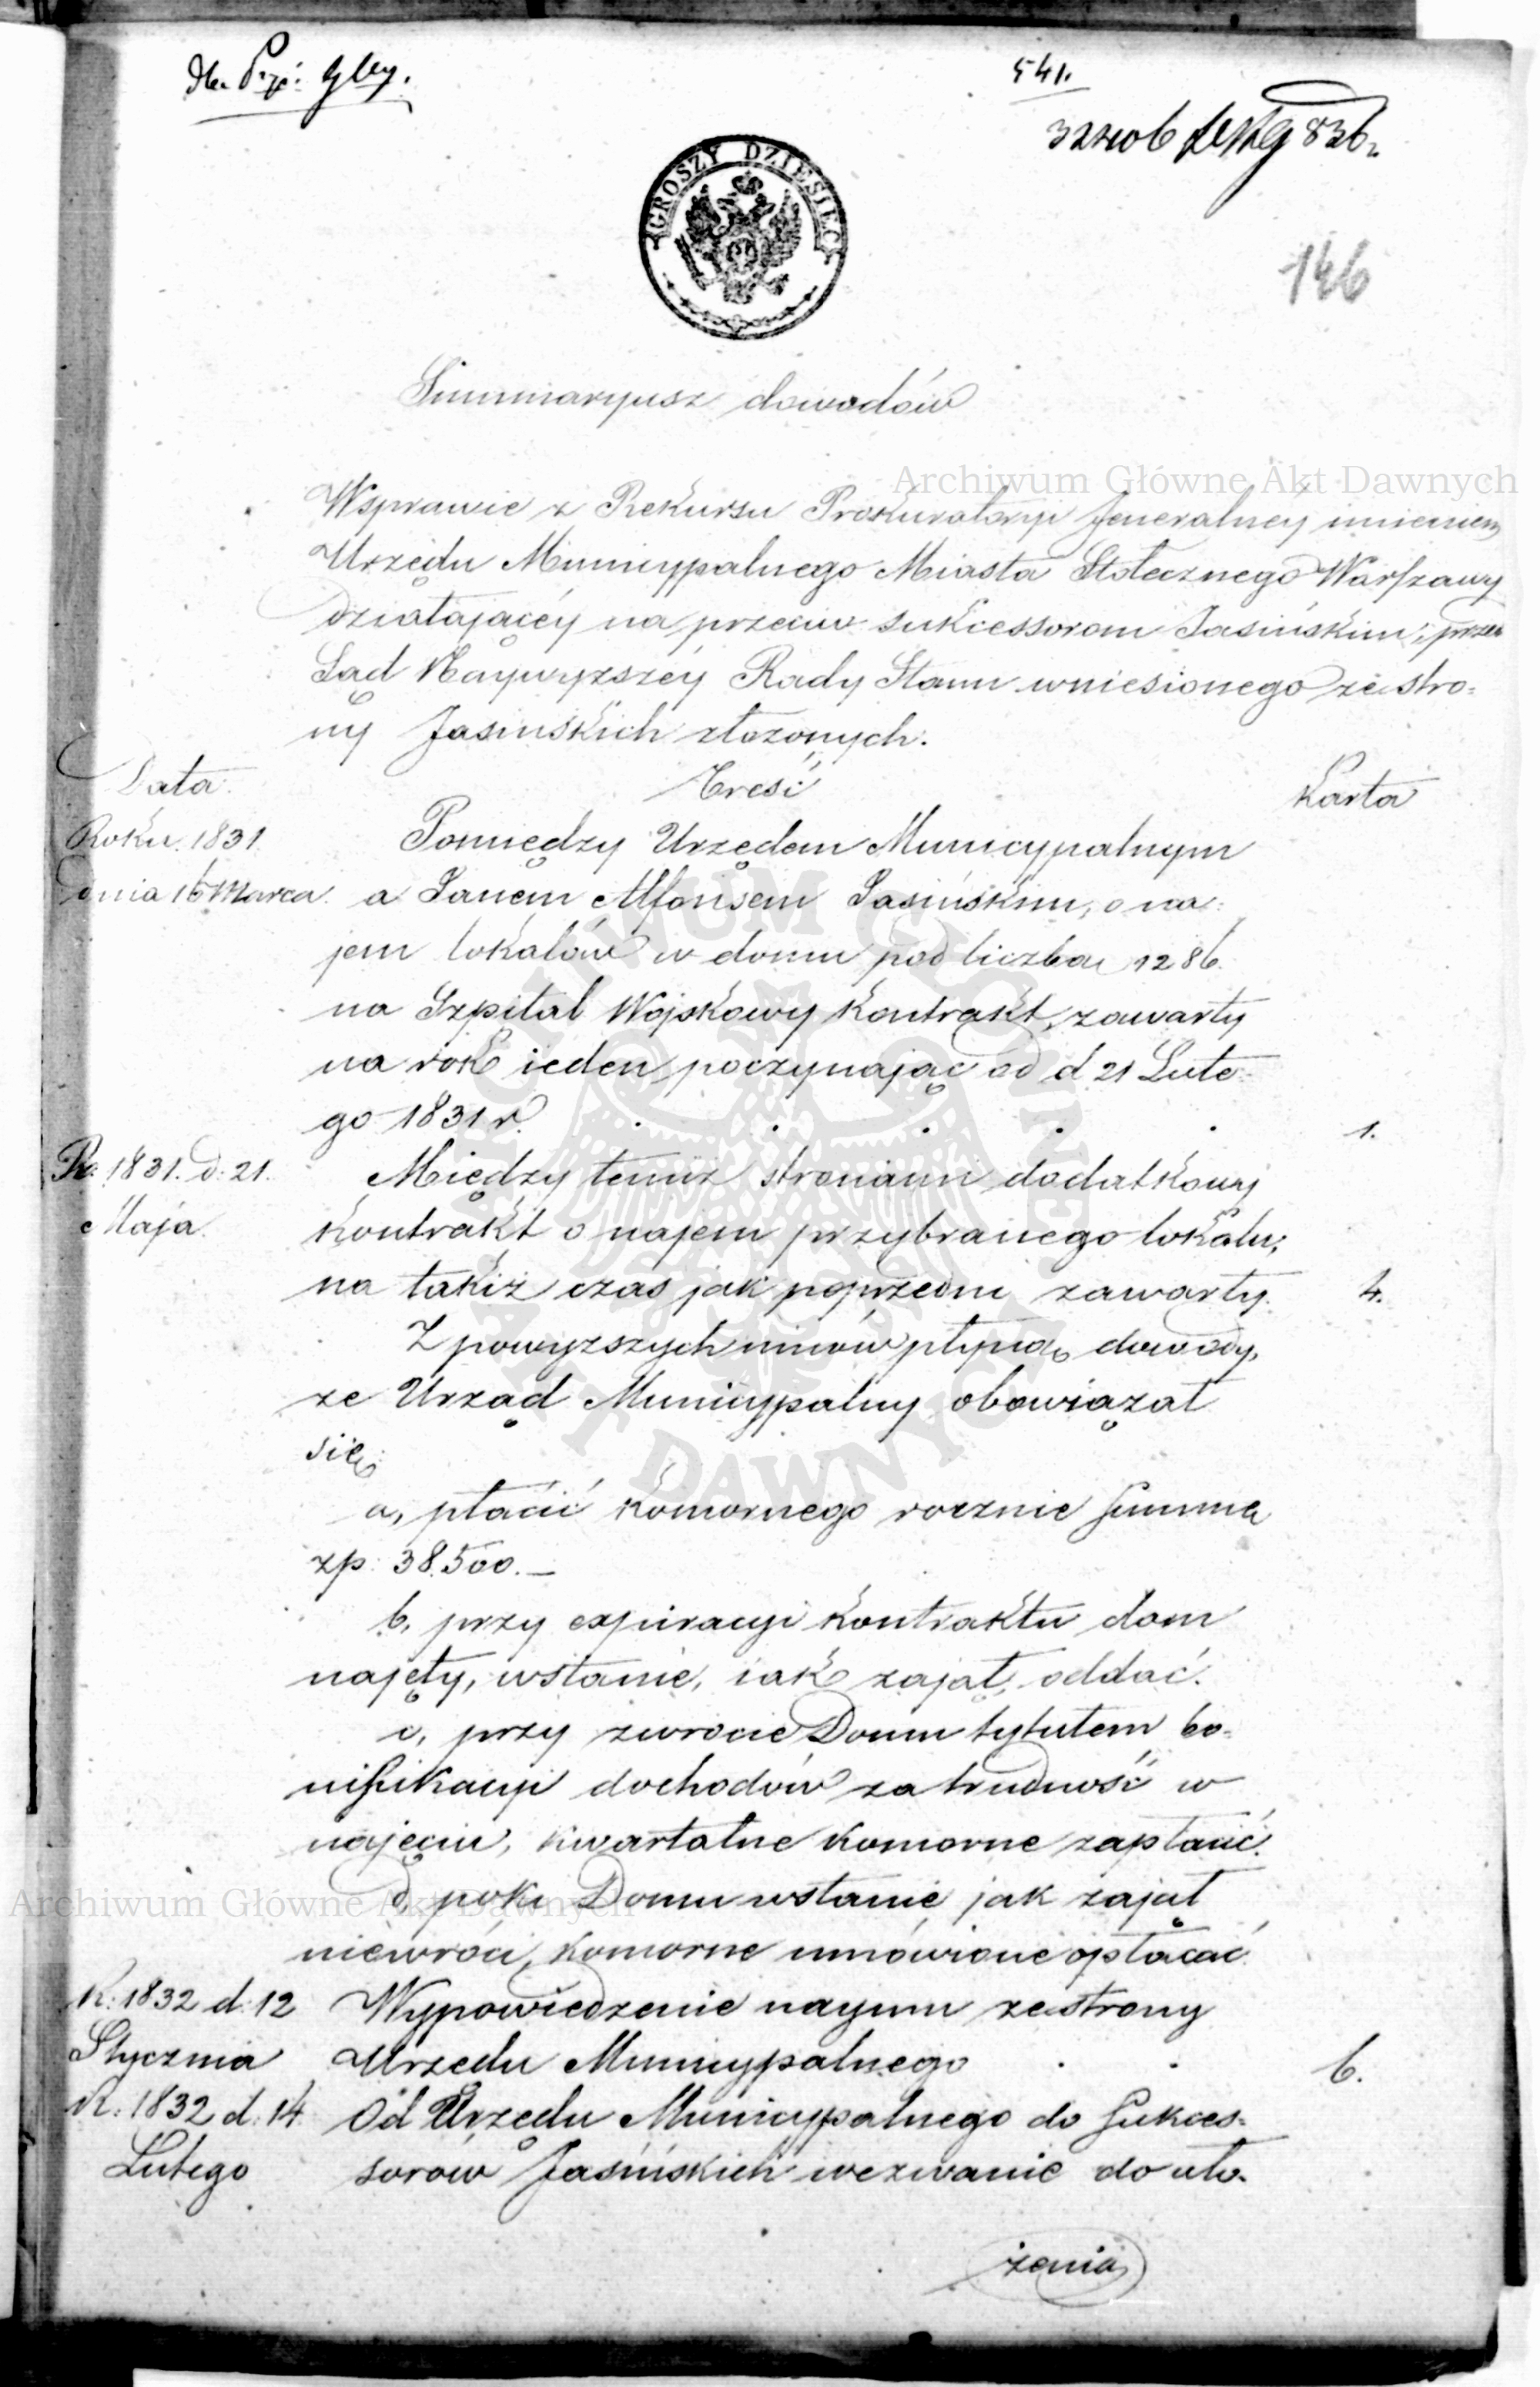 541.
836.
GROSZY DZIESIĘĆ
146
Summaryusz dowodów
Archiwum Główne Akt Dawnych
Wsprawie z Rekursu Prokuratoryi Jeneralnéy imieniem
Urzędu Municypalnego Miasta Stołecznego Warszawy
działaiącéy na przeciw sukcessorom Jasińskim, przez
Sąd Naywyższéy Rady Stanu wniesionego ze stro=
ny Jasińskich złożonych.
Data. Treść Karta
Roku 1831. Pomiędzy Urzędem Municypalnym
dnia 16 Marca. a Janem Alfonsem Jasińskim, o na=
jem lokalów w domu pod liczbą 1286.
na Szpital Wojskowy Kontrakt, zawarty
na rok ieden poczynając od d 21 Lute=
go 1831 r. . . . . . 1.
R. 1831. d. 21. Między temiż stronami dodatkowy
Maja. Kontrakt o najem przybranego lokalu,
na takiż czas jak poprzedni zawarty. 4.
Z powyższych umów płyną dowody,
że Urząd Municypalny obowiązał
się:
a, płacić Komornego rocznie summę
zp: 38.500.—
b, przy expiracyi Kontraktu dom
najęty, wstanie, iak zajął, oddać.
c, przy zwrocie Domu tytułem bo=
nifikacyi dochodów za trudność w
najęciu, kwartalne komorne zapłacić.
Archiwum Główne Akt Dawnych
d, poki Domu wstanie jak zajął
niewróci, komorne umówione opłacać.
R: 1832 d. 12 Wypowiedzenie naymu ze strony
Stycznia Urzędu Municypalnego . . 6.
R. 1832 d. 14. Od Urzędu Municypalnego do Sukces=
Lutego sorów Jasińskich wezwanie do uło=
żenia
ARCHIWUM GŁÓWNE AKT DAWNYCH